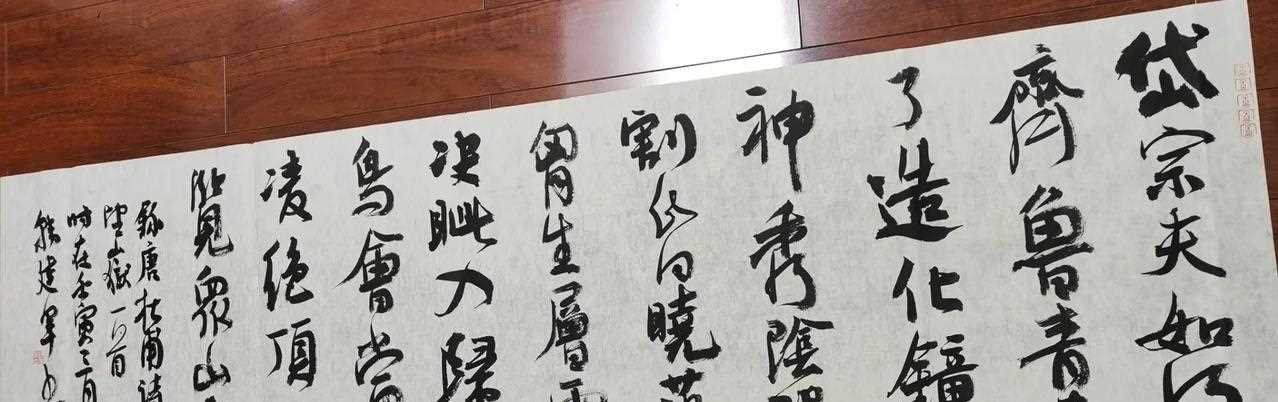 岱宗夫如何
齊魯青
了造化鐘
神秀陰
割昏曉
胷生層
決眦入歸
鳥會當
凌絕頂
覽眾山
錄唐杜甫詩
望嶽一首
時在壬寅三月